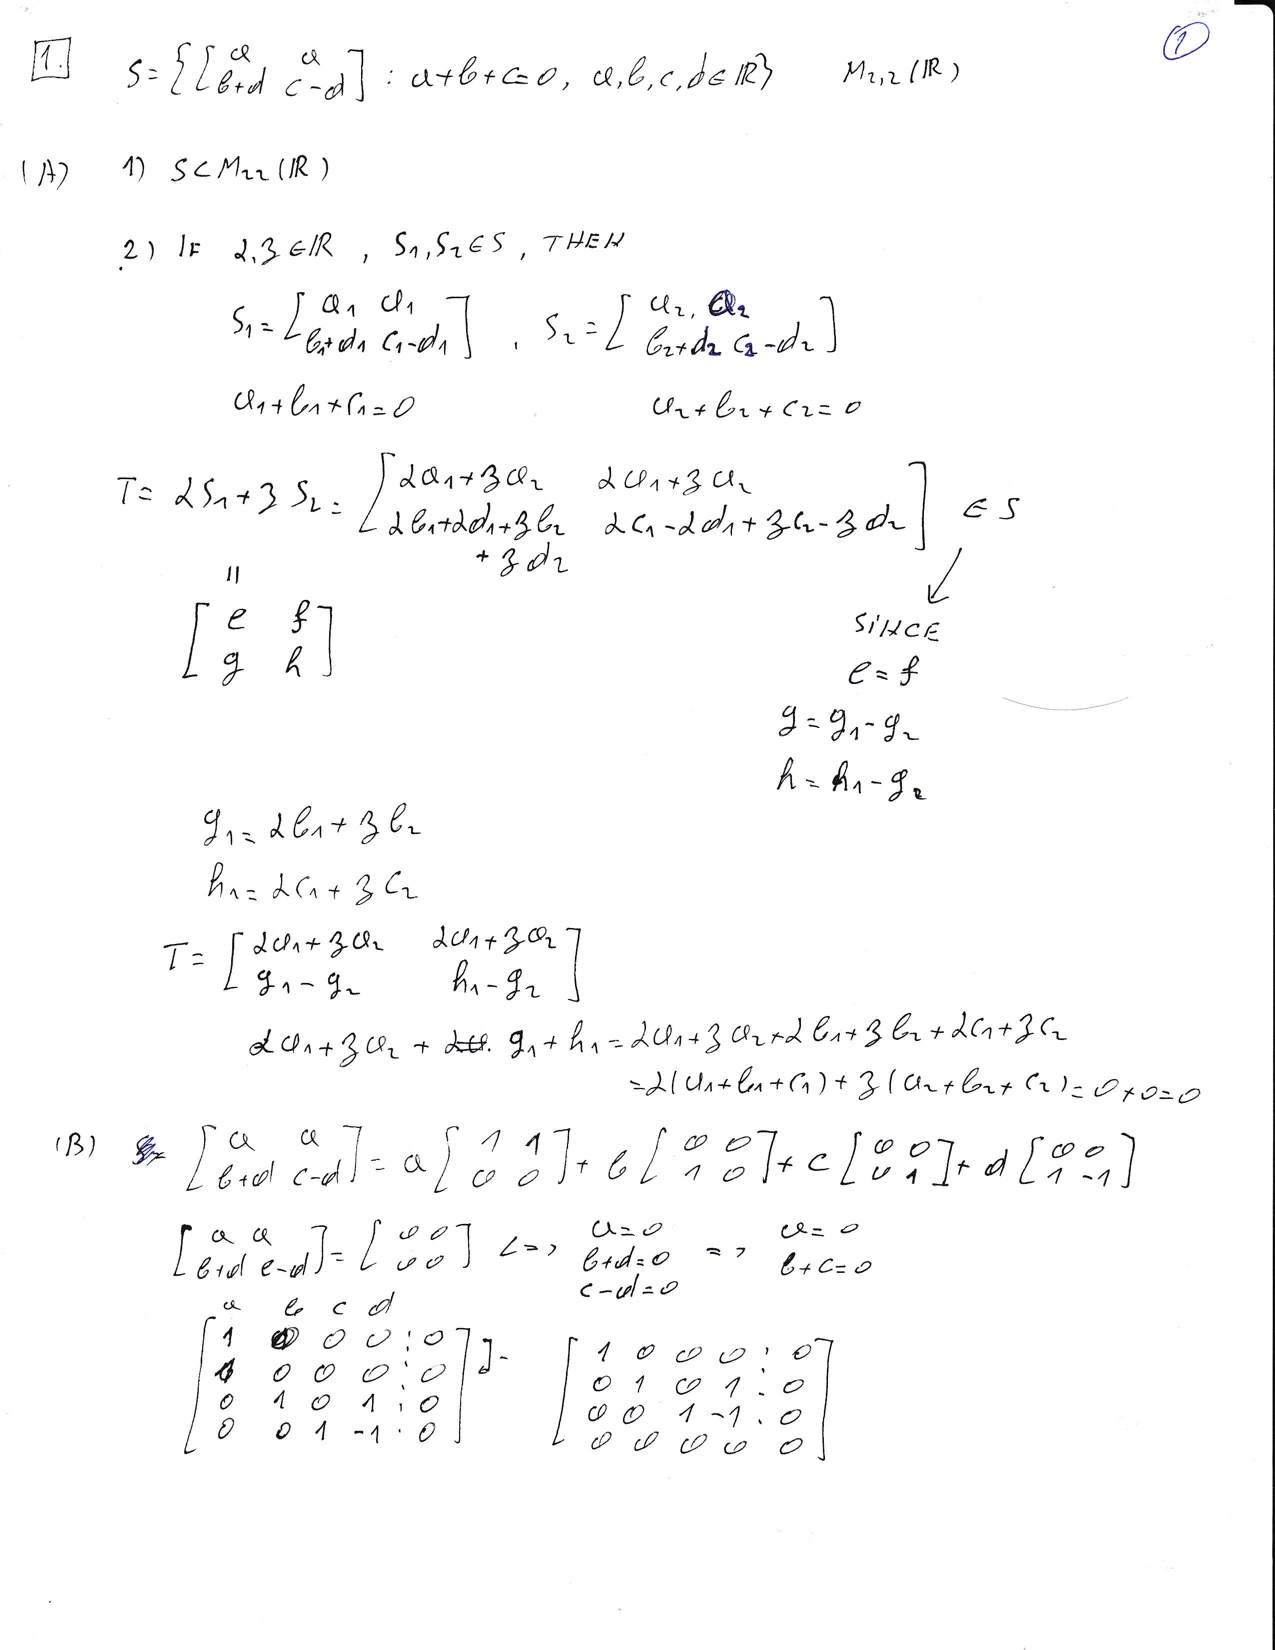 ①
1. S = { [ a a ; b+d c-d ] : a+b+c=0, a,b,c,d ∈ ℝ } M₂,₂(ℝ)
(A) 1) S ⊂ M₂₂(ℝ)
2) IF α,β ∈ ℝ, S₁,S₂ ∈ S, THEN
S₁ = [ a₁ a₁ ; b₁+d₁ c₁-d₁ ], S₂ = [ a₂, a₂ ; b₂+d₂ c₂-d₂ ]
a₁+b₁+c₁=0 a₂+b₂+c₂=0
T = αS₁+βS₂ = [ αa₁+βa₂ αa₁+βa₂ ; αb₁+αd₁+βb₂+βd₂ αc₁-αd₁+βc₂-βd₂ ] ∈ S
||
[ e f ; g h ]
SINCE
e = f
g = g₁-g₂
h = h₁-g₂
g₁ = αb₁+βb₂
h₁ = αc₁+βc₂
T = [ αa₁+βa₂ αa₁+βa₂ ; g₁-g₂ h₁-g₂ ]
αa₁+βa₂+ g₁+h₁ = αa₁+βa₂+αb₁+βb₂+αc₁+βc₂
= α(a₁+b₁+c₁)+β(a₂+b₂+c₂) = 0+0=0
(B) [ a a ; b+d c-d ] = a[ 1 1 ; 0 0 ] + b[ 0 0 ; 1 0 ] + c[ 0 0 ; 0 1 ] + d[ 0 0 ; 1 -1 ]
[ a a ; b+d c-d ] = [ 0 0 ; 0 0 ] <=> a=0 b+d=0 c-d=0 => a=0 b+c=0
a b c d
[ 1 0 0 0 : 0 ] - [ 1 0 0 0 : 0 ]
[ 1 0 0 0 : 0 ] [ 0 1 0 1 : 0 ]
[ 0 1 0 1 : 0 ] [ 0 0 1 -1 : 0 ]
[ 0 0 1 -1 : 0 ] [ 0 0 0 0 0 ]